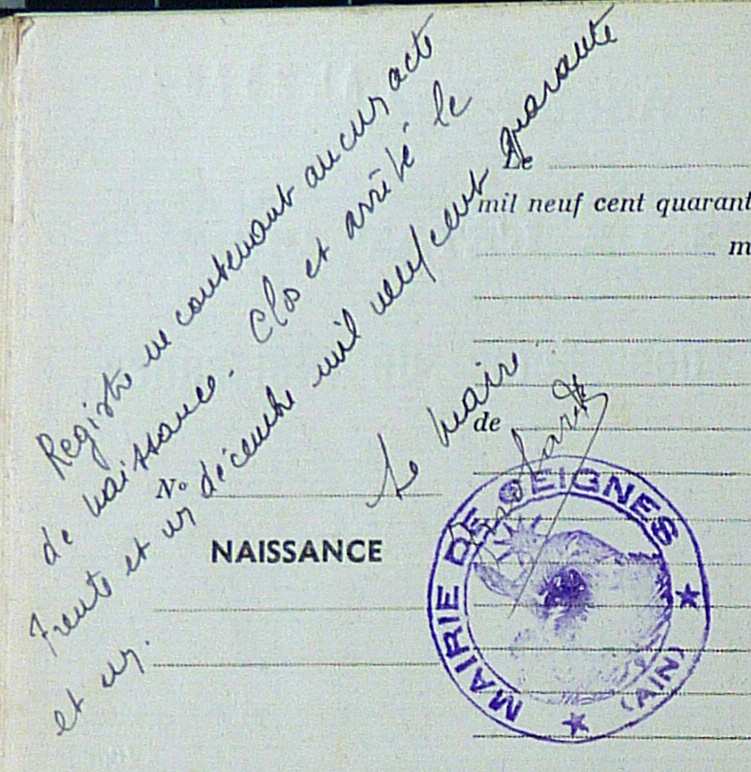 Registre ne contenant aucun acte
de naissance. Clos et arrêté le
trente et un décembre mil neuf cent quarante
et un.
Le Maire
Le
mil neuf cent quarant
m
de
No
NAISSANCE
MAIRIE DE SEIGNES
(AIN)